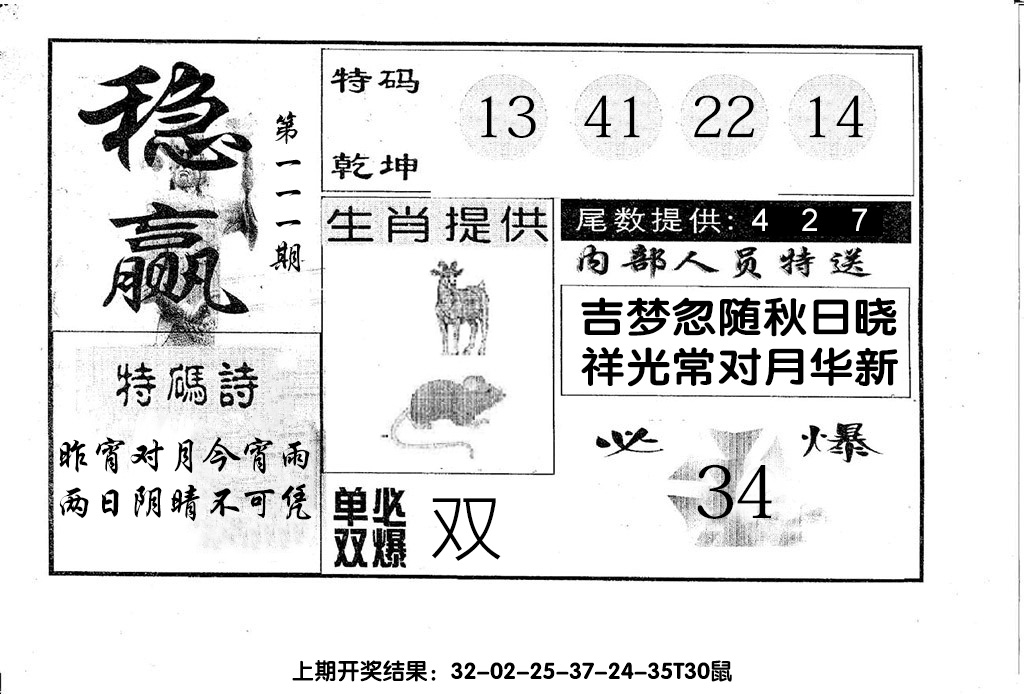 稳赢
第一一一期
特码
乾坤
13 41 22 14
生肖提供
尾数提供: 4 2 7
内部人员特送
吉梦忽随秋日晓
祥光常对月华新
特碼詩
昨宵对月今宵雨
两日阴晴不可凭
单双
必爆
双
必爆
34
上期开奖结果：32-02-25-37-24-35T30鼠